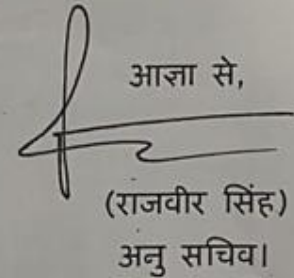 आज्ञा से,
(राजवीर सिंह)
अनु सचिव।